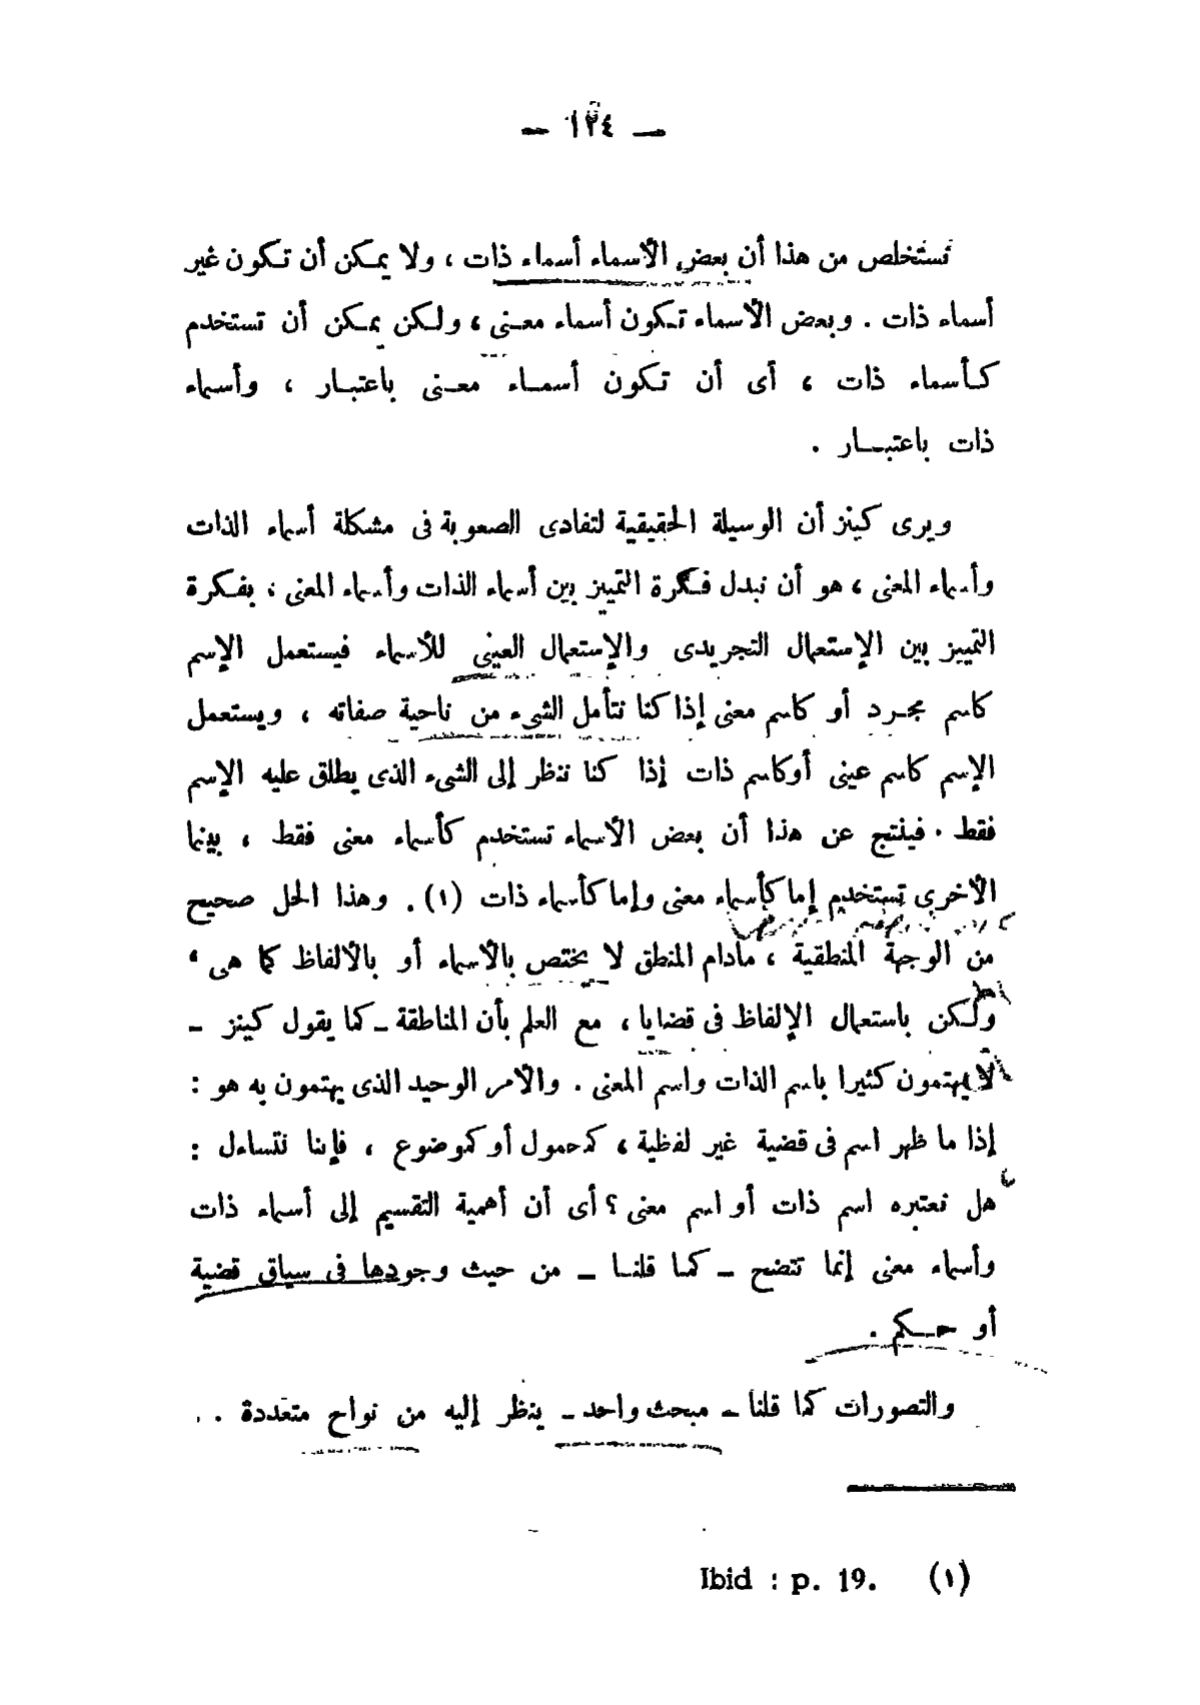 — ١٢٤ —
نستخلص من هذا أن بعض الأسماء أسماء ذات ، ولا يمكن أن تكون غير
أسماء ذات . وبعض الأسماء تكون أسماء معنى ، ولكن يمكن أن تستخدم
كأسماء ذات ، أى أن تكون أسماء معنى باعتبار ، وأسماء
ذات باعتبار .
ويرى كينز أن الوسيلة الحقيقية لتفادى الصعوبة فى مشكلة أسماء الذات
وأسماء المعنى ، هو أن نبدل فكرة التمييز بين أسماء الذات وأسماء المعنى ، بفكرة
التمييز بين الإستعمال التجريدى والإستعمال العينى للأسماء فيستعمل الإسم
كاسم مجرد أو كاسم معنى إذا كنا نتأمل الشىء من ناحية صفاته ، ويستعمل
الإسم كاسم عينى أوكاسم ذات إذا كنا ننظر إلى الشىء الذى يطلق عليه الإسم
فقط . فينتج عن هذا أن بعض الأسماء تستخدم كأسماء معنى فقط ، بينما
الأخرى تستخدم إما كأسماء معنى وإما كأسماء ذات (١) . وهذا الحل صحيح
من الوجهة المنطقية ، مادام المنطق لا يختص بالأسماء أو بالألفاظ كما هى ،
ولكن باستعمال الإلفاظ فى قضايا ، مع العلم بأن المناطقة ـ كما يقول كينز ـ
لا يهتمون كثيرا باسم الذات واسم المعنى . والأمر الوحيد الذى يهتمون به هو :
إذا ما ظهر اسم فى قضية غير لفظية ، كمحمول أو كموضوع ، فإننا نتساءل :
هل نعتبره اسم ذات أو اسم معنى ؟ أى أن أهمية التقسيم إلى أسماء ذات
وأسماء معنى إنما تتضح ـ كما قلنا ـ من حيث وجودها فى سياق قضية
أو حكم .
والتصورات كما قلنا ـ مبحث واحد ـ ينظر إليه من نواح متعددة . .
(١) Ibid : p. 19.